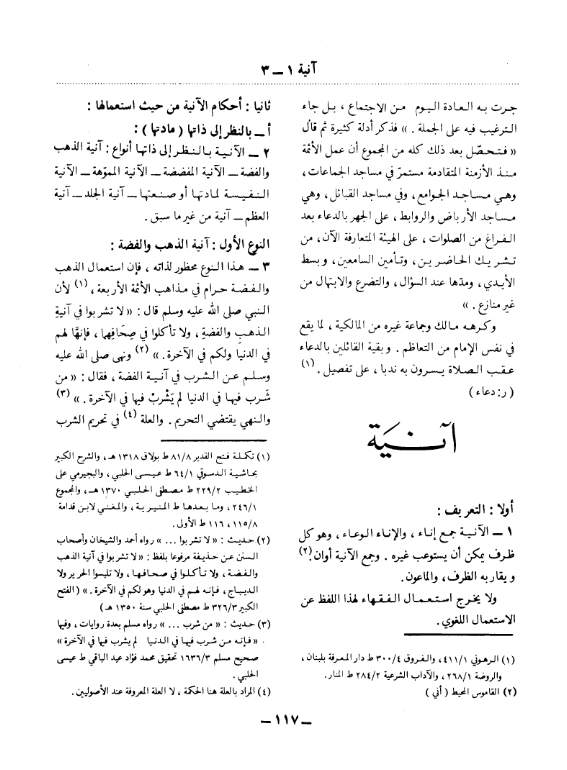 آنية ١ – ٣
جرت به العادة اليوم من الاجتماع ، بل جاء
الترغيب فيه على الجملة . » فذكر أدلة كثيرة ثم قال
« فتحصّل بعد ذلك كله من المجموع أن عمل الأئمة
منذ الأزمنة المتقادمة مستمرّ في مساجد الجماعات ،
وهي مساجد الجوامع ، وفي مساجد القبائل ، وهي
مساجد الأرباض والروابط ، على الجهر بالدعاء بعد
الفراغ من الصلوات ، على الهيئة المتعارفة الآن ، من
تشريك الحاضرين ، وتأمين السامعين ، وبسط
الأيدي ، ومدّها عند السؤال ، والتضرع والابتهال من
غير منازع . »
وكرهه مالك وجماعة غيره من المالكية ، لما يقع
في نفس الإمام من التعاظم . وبقية القائلين بالدعاء
عقب الصلاة يسرون به ندبا ، على تفصيل . (١)
( ر : دعاء )
آنية
أولا : التعريف :
١ – الآنية جمع إناء ، والإناء الوعاء ، وهو كل
ظرف يمكن أن يستوعب غيره . وجمع الآنية أوان . (٢)
ويقاربه الظرف ، والماعون .
ولا يخرج استعمال الفقهاء لهذا اللفظ عن
الاستعمال اللغوي .
(١) الرهوني ٤١١/١ ، والفروق ٣٠٠/٤ ط دار المعرفة بلبنان ،
والروضة ٢٦٨/١ ، والآداب الشرعية ٢٨٤/٢ ط المنار .
(٢) القاموس المحيط ( أني )
ثانيا : أحكام الآنية من حيث استعمالها :
أ – بالنظر إلى ذاتها ( مادتها ) :
٢ – الآنية بالنظر إلى ذاتها أنواع : آنية الذهب
والفضة – الآنية المفضضة – الآنية المموّهة – الآنية
النفيسة لمادتها أو صنعتها – آنية الجلد – آنية
العظم – آنية من غير ما سبق .
النوع الأول : آنية الذهب والفضة :
٣ – هذا النوع محظور لذاته ، فإن استعمال الذهب
والفضة حرام في مذاهب الأئمة الأربعة ، (١) لأن
النبي صلى الله عليه وسلم قال : « لا تشربوا في آنية
الذهب والفضة ، ولا تأكلوا في صِحَافِها ، فإنَّها لهم
في الدنيا ولكم في الآخرة . » (٢) ونهى صلى الله عليه
وسلم عن الشرب في آنية الفضة ، فقال : « من
شَرب فيها في الدنيا لم يَشْربْ فيها في الآخرة . » (٣)
والنهي يقتضي التحريم . والعلة (٤) في تحريم الشرب
(١) تكملة فتح القدير ٨١/٨ ط بولاق ١٣١٨ هـ ، والشرح الكبير
بحاشية الدسوقي ٦٤/١ ط عيسى الحلبي ، والبجيرمي على
الخطيب ٢٢٩/٢ ط مصطفى الحلبي ١٣٧٠ هـ ، والمجموع
٢٤٦/١ ، وما بعدها ط المنيرية ، والمغني لابن قدامة
١١٥/٨ ، ١١٦ ط الأولى .
(٢) حديث : « لا تشربوا ... » رواه أحمد والشيخان وأصحاب
السنن عن حذيفة مرفوعا بلفظ : « لا تشربوا في آنية الذهب
والفضة ، ولا تأكلوا في صحافها ، ولا تلبسوا الحرير ولا
الديباج ، فإنه لهم في الدنيا وهو لكم في الآخرة . » ( الفتح
الكبير ٣٢٦/٣ ط مصطفى الحلبي سنة ١٣٥٠ هـ )
(٣) حديث : « من شرب ... » رواه مسلم بعدة روايات ، وفيها
« فإنه من شرب فيها في الدنيا لم يشرب فيها في الآخرة »
صحيح مسلم ١٦٣٦/٣ تحقيق محمد فؤاد عبد الباقي ط عيسى
الحلبي .
(٤) المراد بالعلة هنا الحكمة ، لا العلة المعروفة عند الأصوليين .
– ١١٧ –